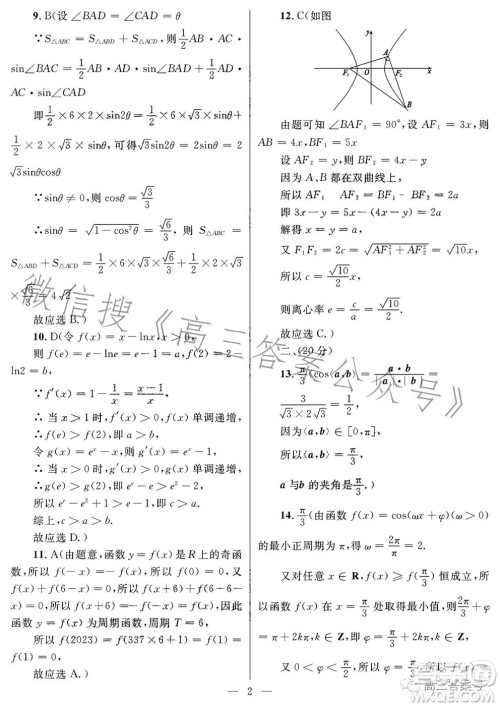 9. B(设∠BAD=∠CAD=θ
∵S△ABC=S△ABD+S△ACD,则1/2 AB·AC·
sin∠BAC=1/2 AB·AD·sin∠BAD+1/2 AC·
AD·sin∠CAD
即1/2×6×2×sin2θ=1/2×6×√3×sinθ+
1/2×2×√3×sinθ,可得√3sin2θ=2sinθ=2
√3sinθcosθ
∵sinθ≠0,则cosθ=√3/3
∴sinθ=√(1-cos²θ)=√6/3,则S△ABC=
S△ABD+S△ACD=1/2×6×√3×√6/3+1/2×2×√3
×√6/3=4√2
故应选B.)
10. D(令f(x)=x-lnx,x>0
∴f(e)=e-lne=e-1=a,f(2)=2-
ln2=b.
∵f′(x)=1-1/x=(x-1)/x,
∴当x>1时,f′(x)>0,f(x)单调递增,
∴f(e)>f(2),即a>b.
∴当x>0时,g′(x)>0,g(x)单调递增,
综上,c>a>b.
故应选D.)
11. A(由题意,函数y=f(x)是R上的奇函
数,所以f(-x)=-f(x),所以f(0)=0.又
所以f(2023)=f(337×6+1)=
f(1)=0.
故应选A.)
— 2 —
12. C(如图
y
A
F₁
O
F₂
x
B
由题可知∠BAF₁=90°,设AF₁=3x,则
AB=4x,BF₁=5x
设AF₂=a,则BF₂=4x-a
因为A、B都在双曲线上,
所以AF₁-AF₂=BF₁-BF₂=2a
即3x-a=5x-(4x-a)=2a
解得x=a,
又F₁F₂=2c=√(AF₁²+AF₂²)=√10x,
所以c=√10/2 x,
则离心率e=c/a=√10/2.
故应选C.)
二、(20分)
13. π/3(cos⟨a,b⟩=a·b/(|a|·|b|)=
3/(√3×2√3)=1/2,
因为⟨a,b⟩∈[0,π],
所以⟨a,b⟩=π/3,
a与b的夹角是π/3.)
14. π/3(由函数f(x)=cos(ωx+φ)(ω>0)
的最小正周期为π,可得ω=2π/π=2.
又对任意x∈R,f(x)≥f(π/3)恒成立,所
以函数f(x)在x=π/3处取得最小值,则2π/3+φ
=π+2kπ,k∈Z,即φ=π/3+2kπ,k∈Z.
又0<φ<π/2,所以φ=π/3.
微信搜《高三答案公众号》